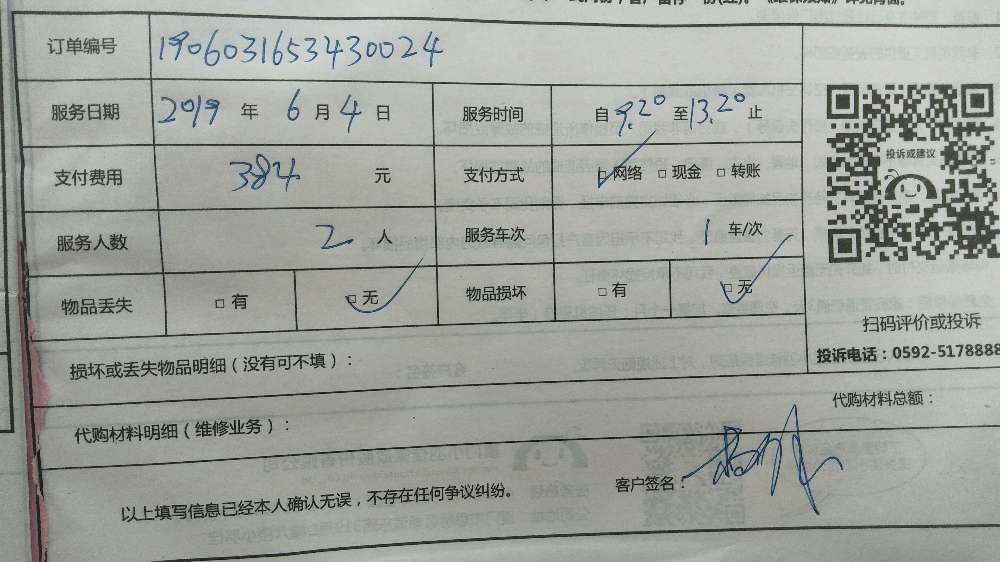 订单编号 1906031653430024
服务日期 2019 年 6 月 4 日 服务时间 自 9.20 至 13.20 止
支付费用 384 元 支付方式 □网络 □现金 □转账
服务人数 2 人 服务车次 1 车/次
物品丢失 □有 □无 物品损坏 □有 □无
投诉或建议
扫码评价或投诉
投诉电话：0592-5178888
损坏或丢失物品明细（没有可不填）：
代购材料明细（维修业务）： 代购材料总额：
以上填写信息已经本人确认无误，不存在任何争议纠纷。 客户签名：